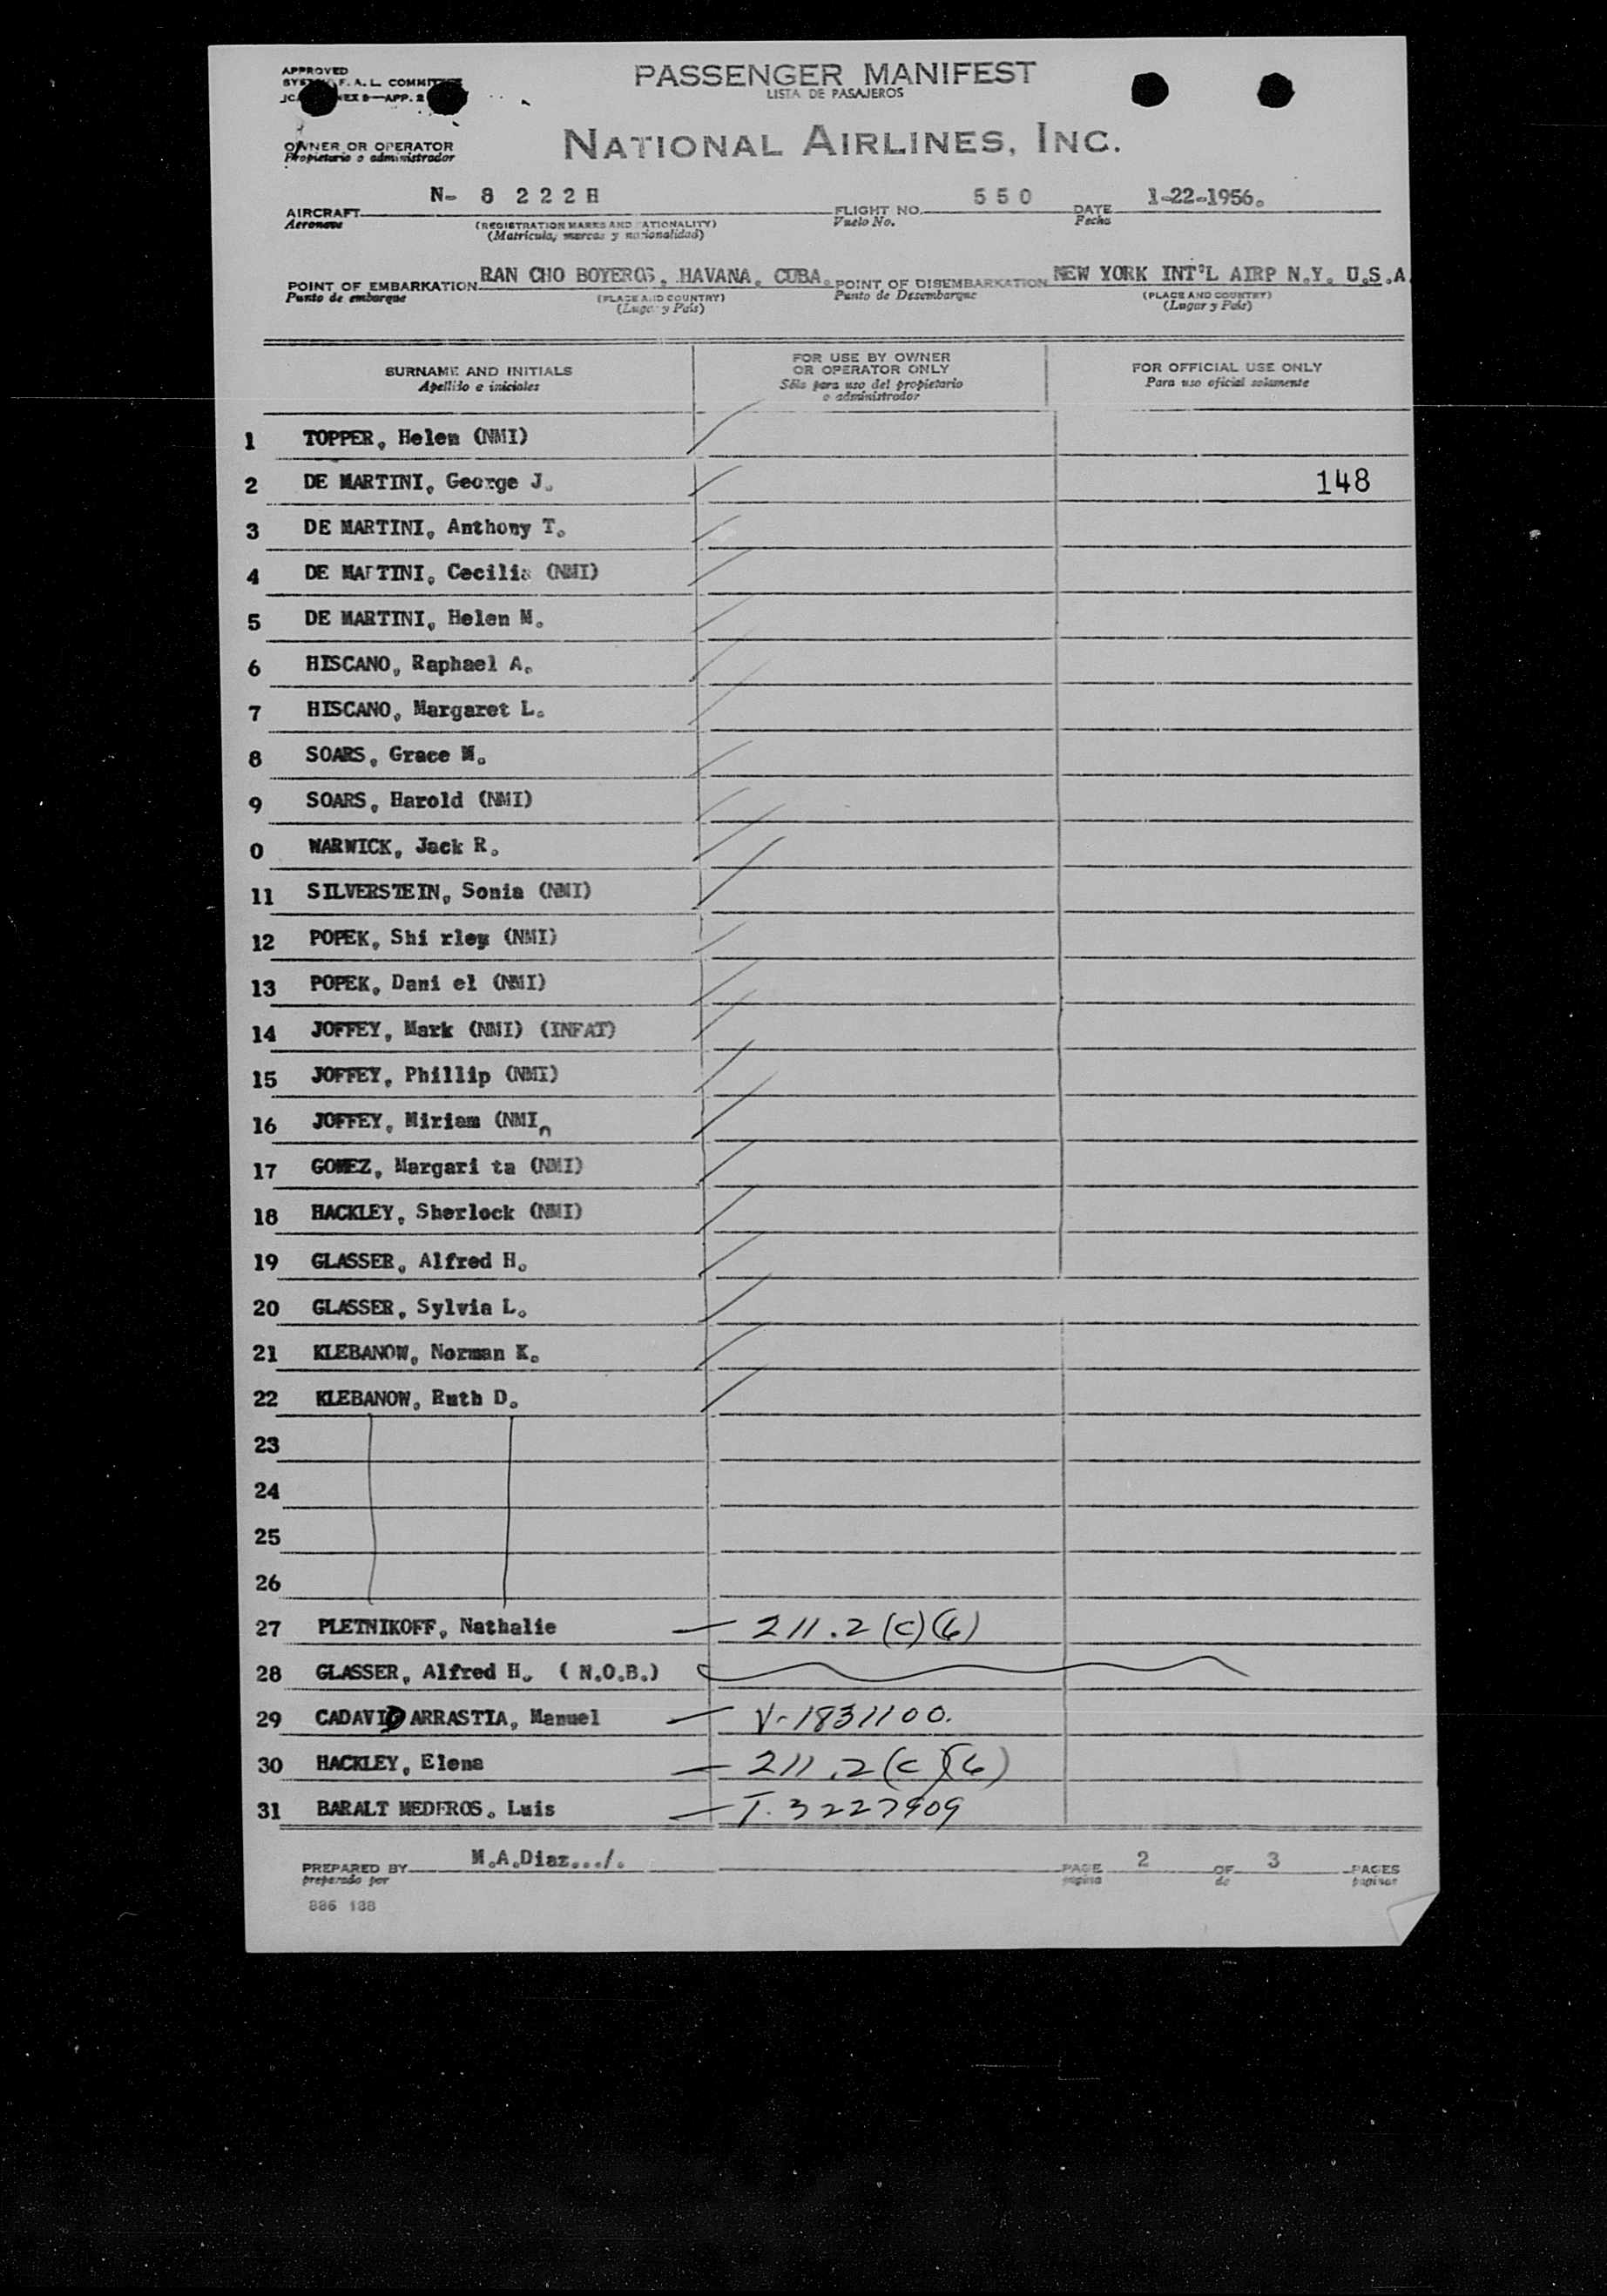 APPROVED
F. A. L. COMMITTEE
EX 9—APP. 2
PASSENGER MANIFEST
LISTA DE PASAJEROS
OWNER OR OPERATOR
Propietario o administrador
NATIONAL AIRLINES, INC.
AIRCRAFT N- 8 2 2 2 H FLIGHT NO. 5 5 0 DATE 1-22-1956.
Aeronave (REGISTRATION MARKS AND NATIONALITY) Vuelo No. Fecha
(Matrícula, marcas y nacionalidad)
POINT OF EMBARKATION RAN CHO BOYEROS, HAVANA, CUBA. POINT OF DISEMBARKATION NEW YORK INT'L AIRP N.Y. U.S.A
Punto de embarque (PLACE AND COUNTRY) Punto de Desembarque (PLACE AND COUNTRY)
(Lugar y País) (Lugar y País)
SURNAME AND INITIALS FOR USE BY OWNER OR OPERATOR ONLY FOR OFFICIAL USE ONLY
Apellido e iniciales Sólo para uso del propietario o administrador Para uso oficial solamente
1 TOPPER, Helen (NMI)
2 DE MARTINI, George J. 148
3 DE MARTINI, Anthony T.
4 DE MARTINI, Cecilia (NMI)
5 DE MARTINI, Helen M.
6 HISCANO, Raphael A.
7 HISCANO, Margaret L.
8 SOARS, Grace M.
9 SOARS, Harold (NMI)
0 WARWICK, Jack R.
11 SILVERSTEIN, Sonia (NMI)
12 POPEK, Shi rley (NMI)
13 POPEK, Dani el (NMI)
14 JOFFEY, Mark (NMI) (INFAT)
15 JOFFEY, Phillip (NMI)
16 JOFFEY, Miriam (NMI
17 GOMEZ, Margari ta (NMI)
18 HACKLEY, Sherlock (NMI)
19 GLASSER, Alfred H.
20 GLASSER, Sylvia L.
21 KLEBANOW, Norman K.
22 KLEBANOW, Ruth D.
23
24
25
26
27 PLETNIKOFF, Nathalie — 211.2(c)(6)
28 GLASSER, Alfred H. ( N.O.B.)
29 CADAVID ARRASTIA, Manuel — V-1831100.
30 HACKLEY, Elena — 211.2(c)(6)
31 BARALT MEDEROS. Luis — T. 3227909
PREPARED BY M.A.Diaz.../. PAGE 2 OF 3 PAGES
preparado por pagina de paginas
886 188